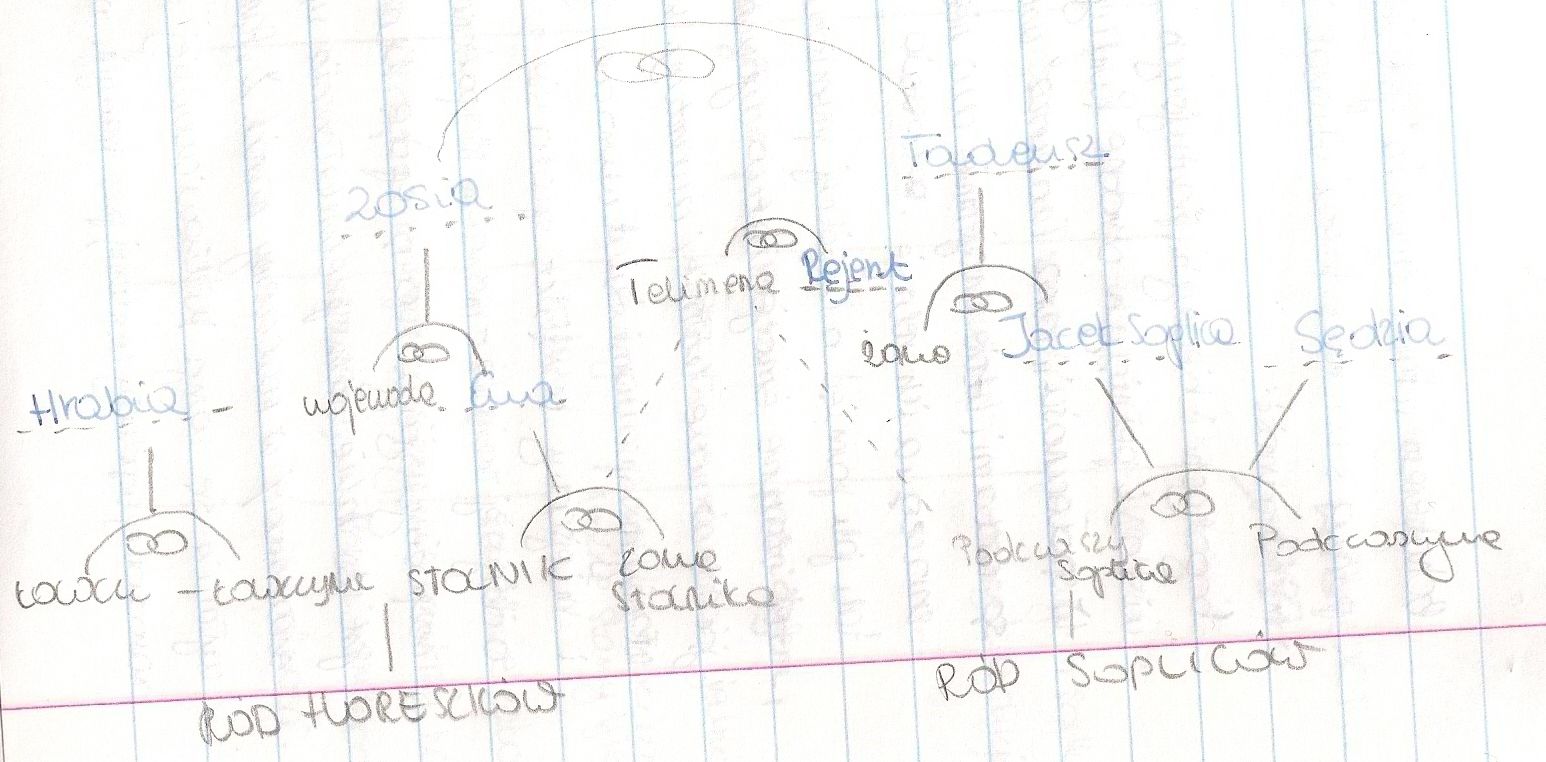 Tadeusz
Zosia
Telimena Rejent
żona Jacek Soplica Sędzia
Hrabia - wojewoda Ewa
Łowczy - Łowczyna STOLNIK żona Stolnika
Podczaszy Soplica Podczaszyna
RÓD HORESZKÓW
RÓD SOPLICÓW